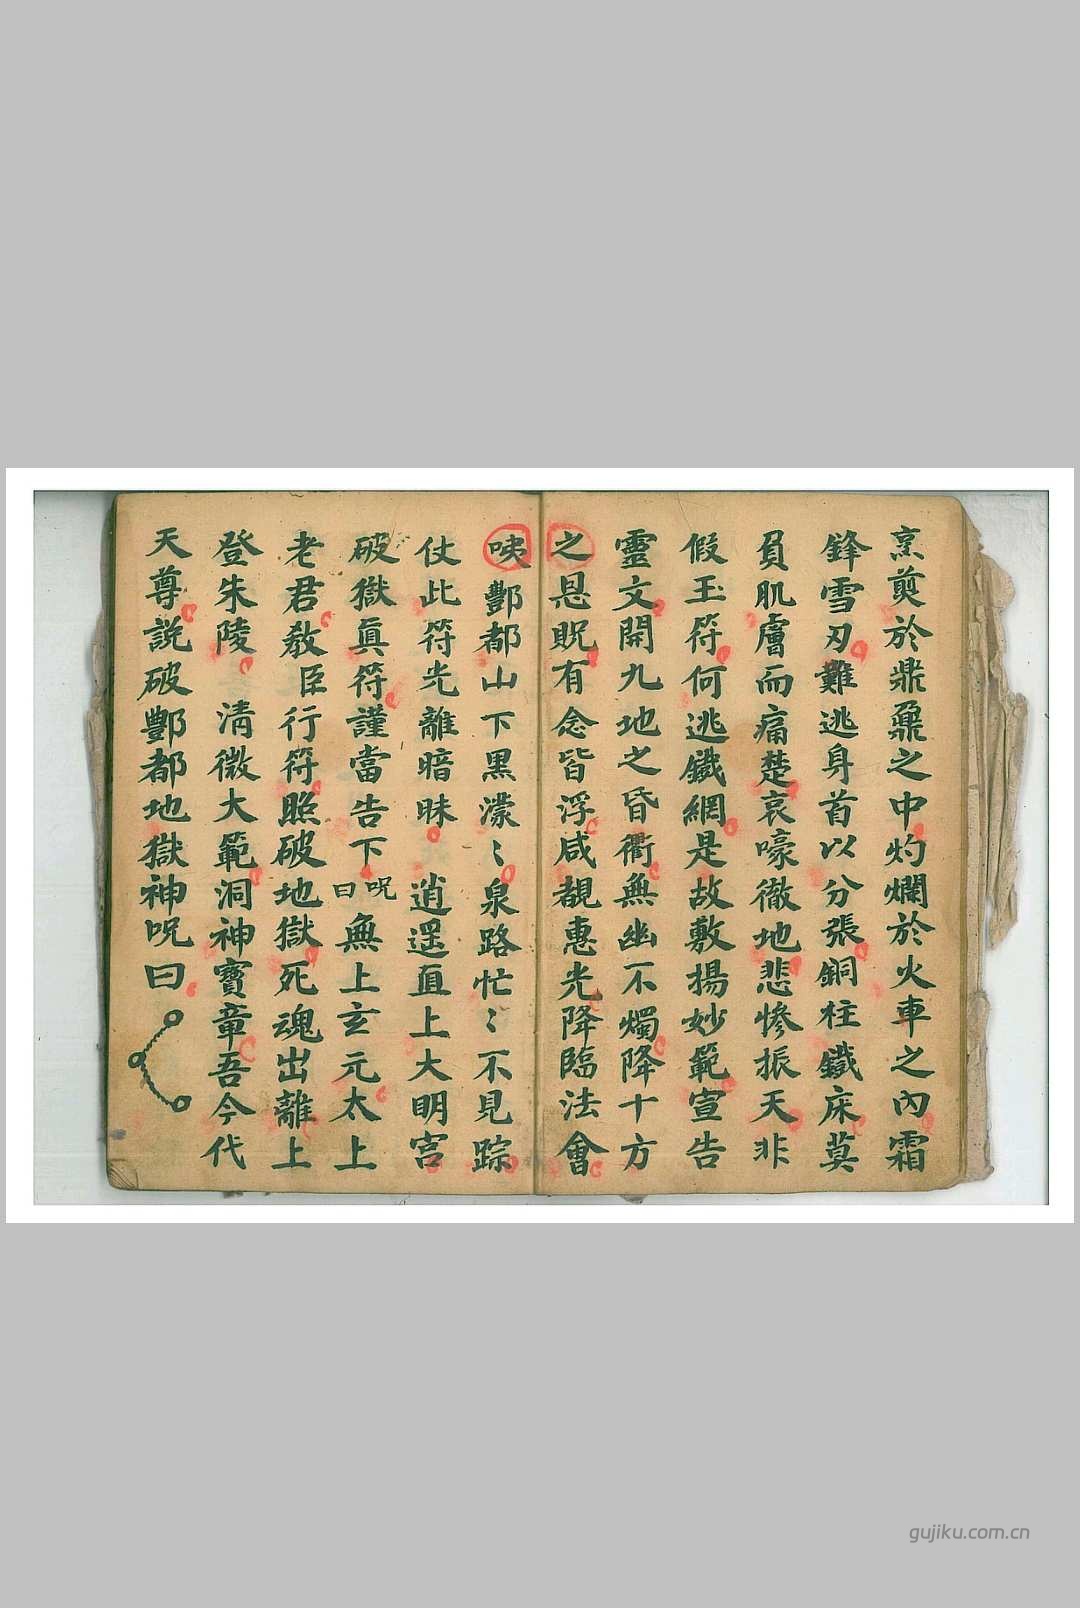 烹煎於鼎鼐之中灼爛於火車之內霜
鋒雪刃難逃身首以分張銅柱鐵床莫
負肌膚而痛楚哀嚎徹地悲慘振天非
假玉符何逃鐵網是故敷揚妙範宣告
靈文開九地之昏衢無幽不燭降十方
之恩貺有念皆浮咸覩惠光降臨法會
咦酆都山下黑濛〻泉路忙〻不見踪
仗此符光離暗昧逍遥直上大明宮
破獄真符謹當告下呪曰無上玄元太上
老君敎臣行符照破地獄死魂出離上
登朱陵清微大範洞神寶章吾今代
天尊説破酆都地獄神呪曰
gujiku.com.cn